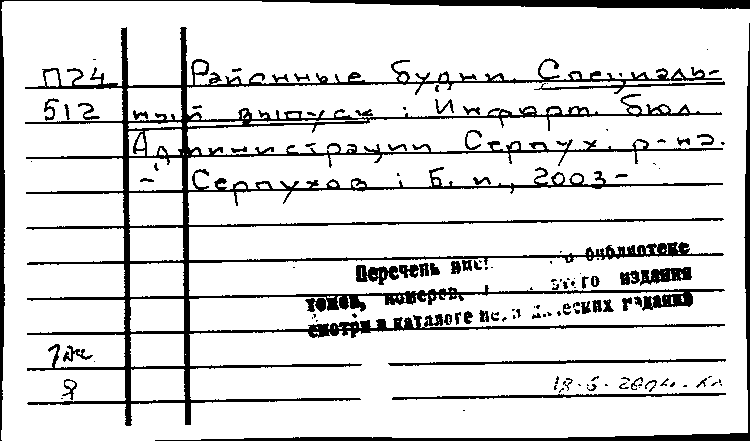 П24 Районные будни. Специаль-
512 ный выпуск : Информ. бюл.
Администрации Серпух. р-на.
– Серпухов : Б. и., 2003–
Перечень библиотеке
томов, номеров, этого издания
смотри в каталоге изданий
1эк
18-6-2004